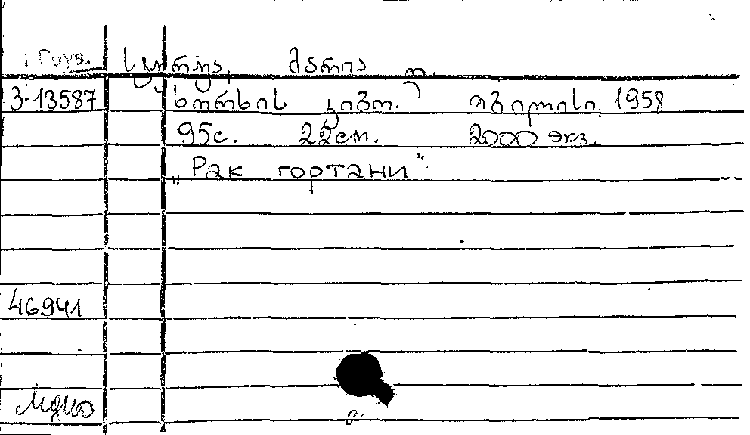 Груз.
სტურუა, მარია ი.
3-13587 ხორხის კიბო. თბილისი 1958
95с. 22см. 2000 экз.
„Рак гортани“.
46941